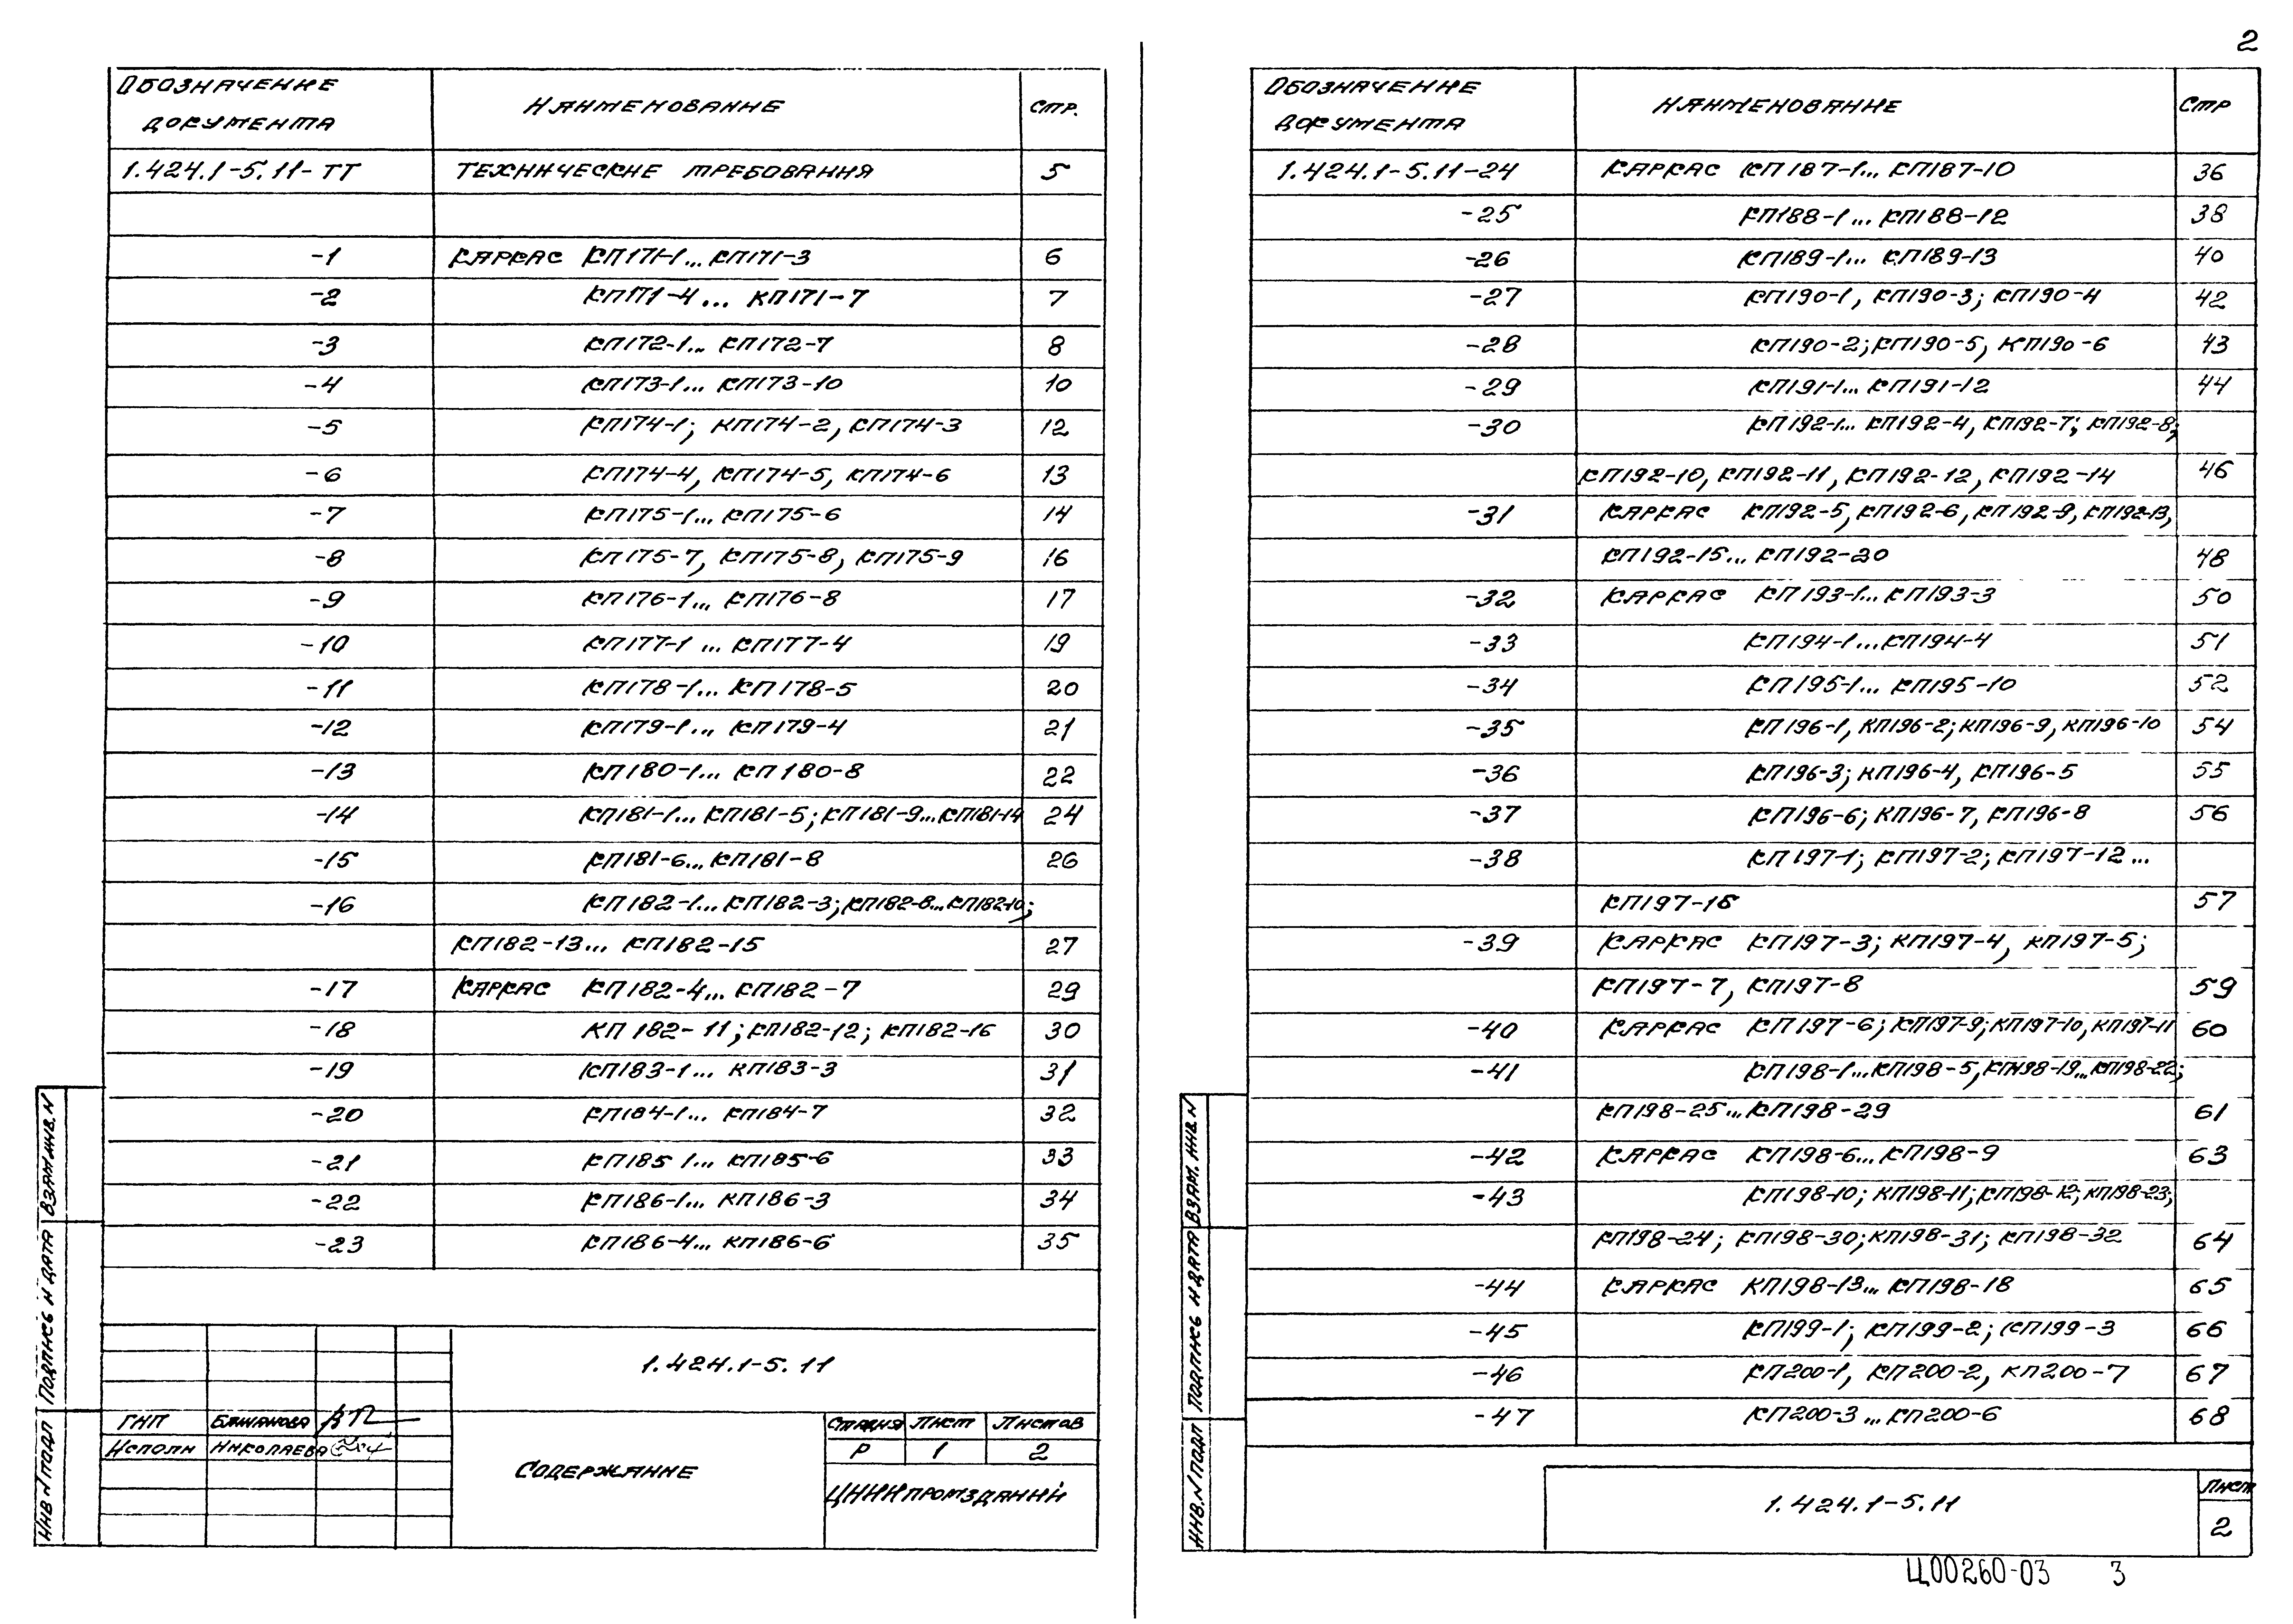 2
Обозначение документа Наименование Стр.
1.424.1-5.11-ТТ Технические требования 5
-1 Каркас КП171-1... КП171-3 6
-2 КП171-4... КП171-7 7
-3 КП172-1... КП172-7 8
-4 КП173-1... КП173-10 10
-5 КП174-1; КП174-2, КП174-3 12
-6 КП174-4, КП174-5, КП174-6 13
-7 КП175-1... КП175-6 14
-8 КП175-7, КП175-8, КП175-9 16
-9 КП176-1... КП176-8 17
-10 КП177-1 ... КП177-4 19
-11 КП178-1... КП178-5 20
-12 КП179-1... КП179-4 21
-13 КП180-1... КП180-8 22
-14 КП181-1... КП181-5; КП181-9... КП181-14 24
-15 КП181-6... КП181-8 26
-16 КП182-1... КП182-3; КП182-8... КП182-10;
КП182-13... КП182-15 27
-17 Каркас КП182-4... КП182-7 29
-18 КП182-11; КП182-12; КП182-16 30
-19 КП183-1... КП183-3 31
-20 КП184-1... КП184-7 32
-21 КП185 1... КП185-6 33
-22 КП186-1... КП186-3 34
-23 КП186-4... КП186-6 35
1.424.1-5.11
ГИП Бажанова
Исполн Николаева
Содержание
Стадия Лист Листов
Р 1 2
ЦНИИпромзданий
Инв N подл Подпись и дата Взам инв. N
Обозначение документа Наименование Стр
1.424.1-5.11-24 Каркас КП187-1... КП187-10 36
-25 КП188-1... КП188-12 38
-26 КП189-1... КП189-13 40
-27 КП190-1, КП190-3; КП190-4 42
-28 КП190-2; КП190-5, КП190-6 43
-29 КП191-1... КП191-12 44
-30 КП192-1... КП192-4, КП192-7; КП192-8;
КП192-10, КП192-11, КП192-12, КП192-14 46
-31 Каркас КП192-5, КП192-6, КП192-9, КП192-13,
КП192-15... КП192-20 48
-32 Каркас КП193-1... КП193-3 50
-33 КП194-1... КП194-4 51
-34 КП195-1... КП195-10 52
-35 КП196-1, КП196-2; КП196-9, КП196-10 54
-36 КП196-3; КП196-4, КП196-5 55
-37 КП196-6; КП196-7, КП196-8 56
-38 КП197-1; КП197-2; КП197-12...
КП197-16 57
-39 Каркас КП197-3; КП197-4, КП197-5;
КП197-7, КП197-8 59
-40 Каркас КП197-6; КП197-9; КП197-10, КП197-11 60
-41 КП198-1... КП198-5, КП198-19... КП198-22;
КП198-25... КП198-29 61
-42 Каркас КП198-6... КП198-9 63
-43 КП198-10; КП198-11; КП198-12; КП198-23;
КП198-24; КП198-30; КП198-31; КП198-32 64
-44 Каркас КП198-13... КП198-18 65
-45 КП199-1; КП199-2; КП199-3 66
-46 КП200-1, КП200-2, КП200-7 67
-47 КП200-3 ... КП200-6 68
1.424.1-5.11
Лист
2
Инв. N подл Подпись и дата Взам. инв. N
Ц00260-03 3